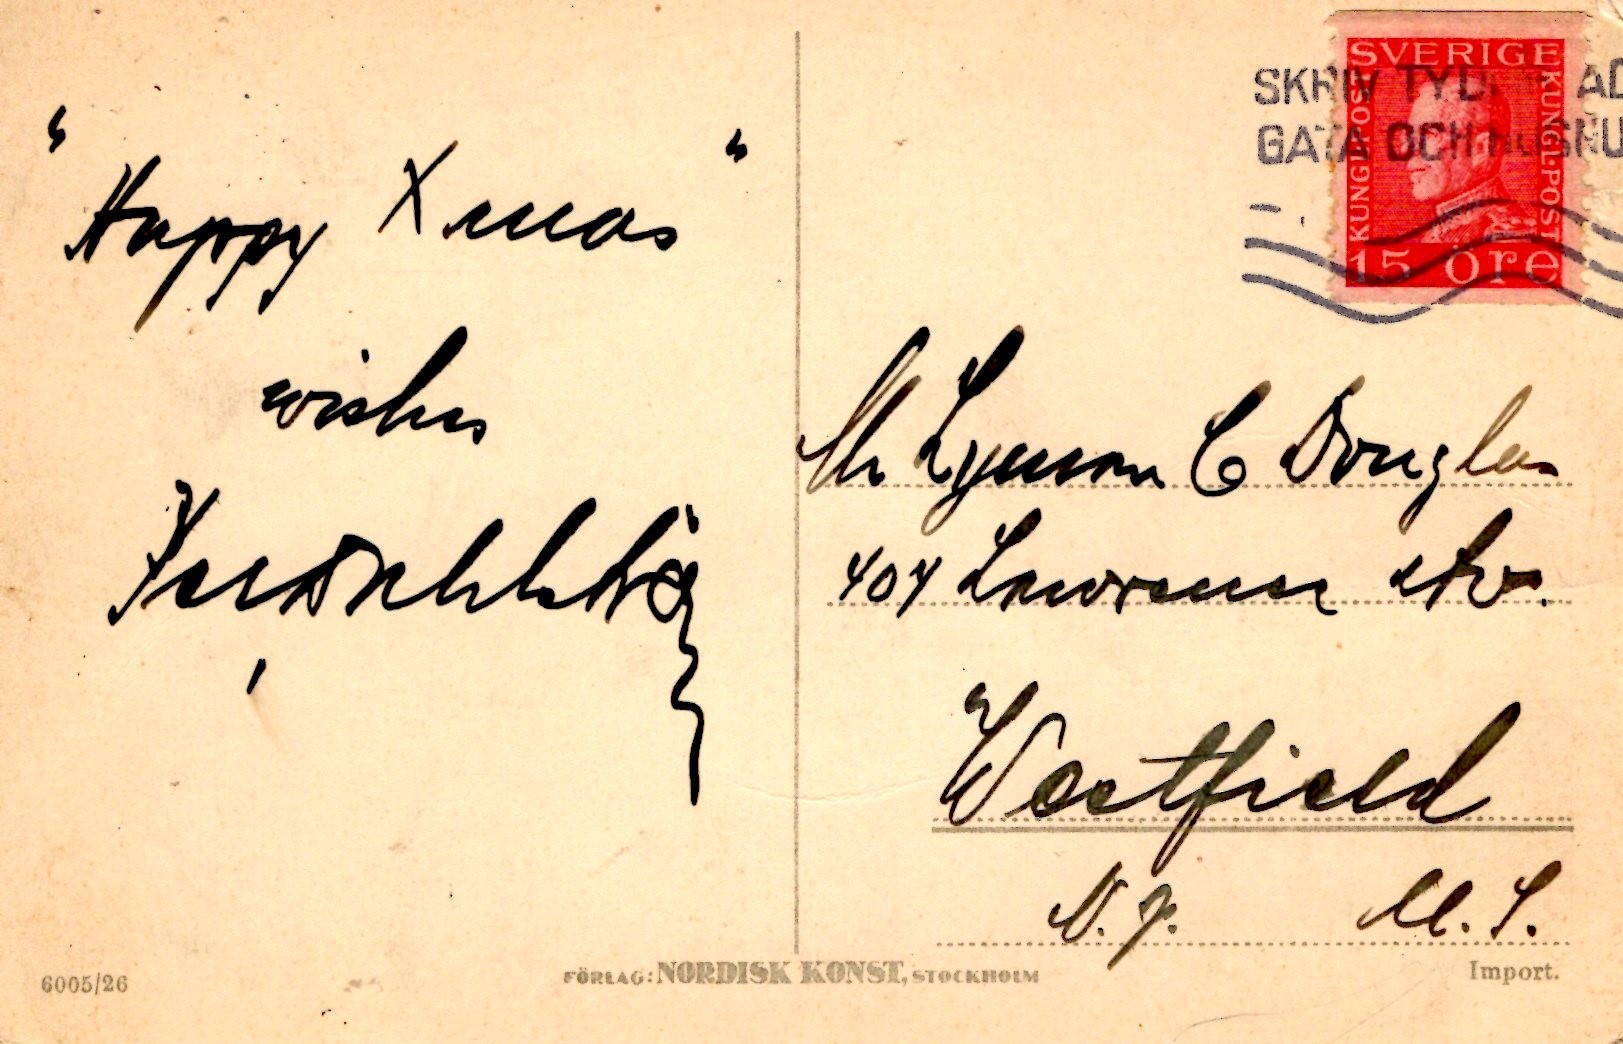 "Happy Xmas"
wishes
Mr Lyman C Douglas
404 Lawrence Av.
Westfield
N.J. U.S.
SVERIGE
KUNGL·POST
KUNGL·POST
15 öre
SKRIV TYDL AD
GATA OCH HUSNU
6005/26
FÖRLAG: NORDISK KONST, STOCKHOLM
Import.